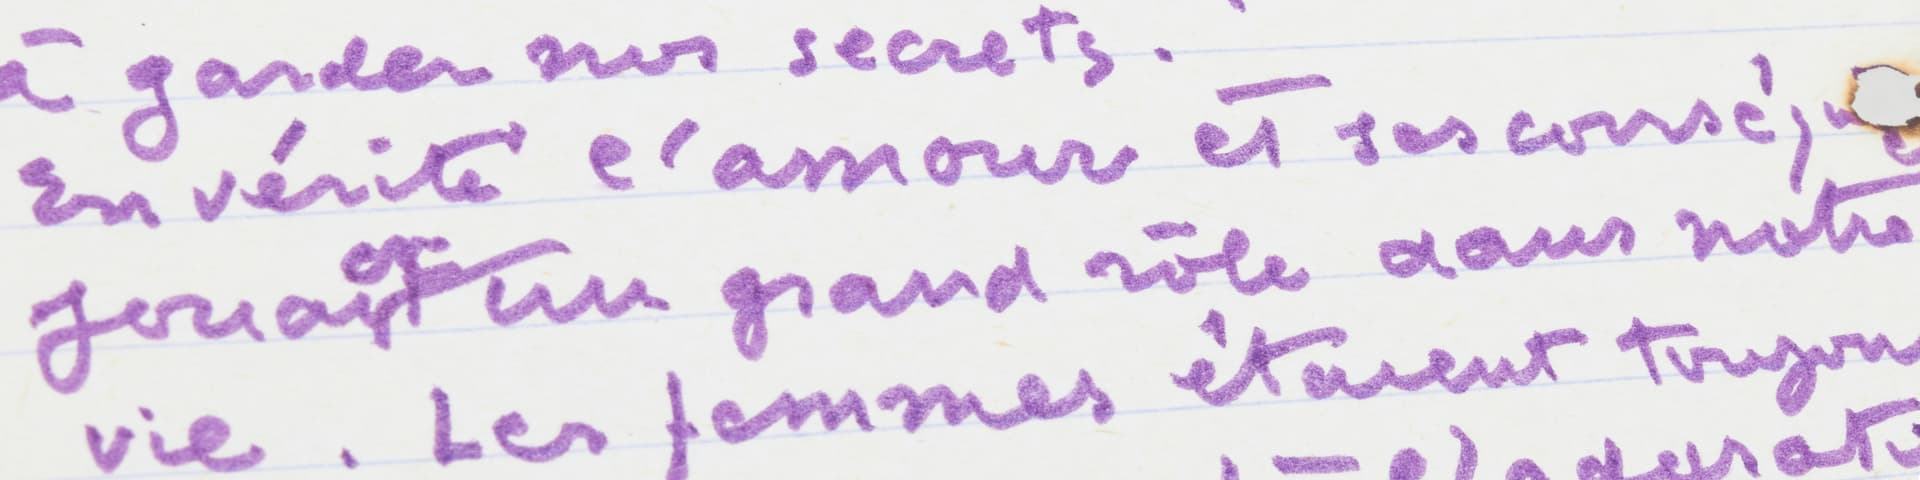 à garder nos secrets.
En vérité l'amour et ses
jouait un grand rôle dans notre
vie. Les femmes étaient
l'adorati